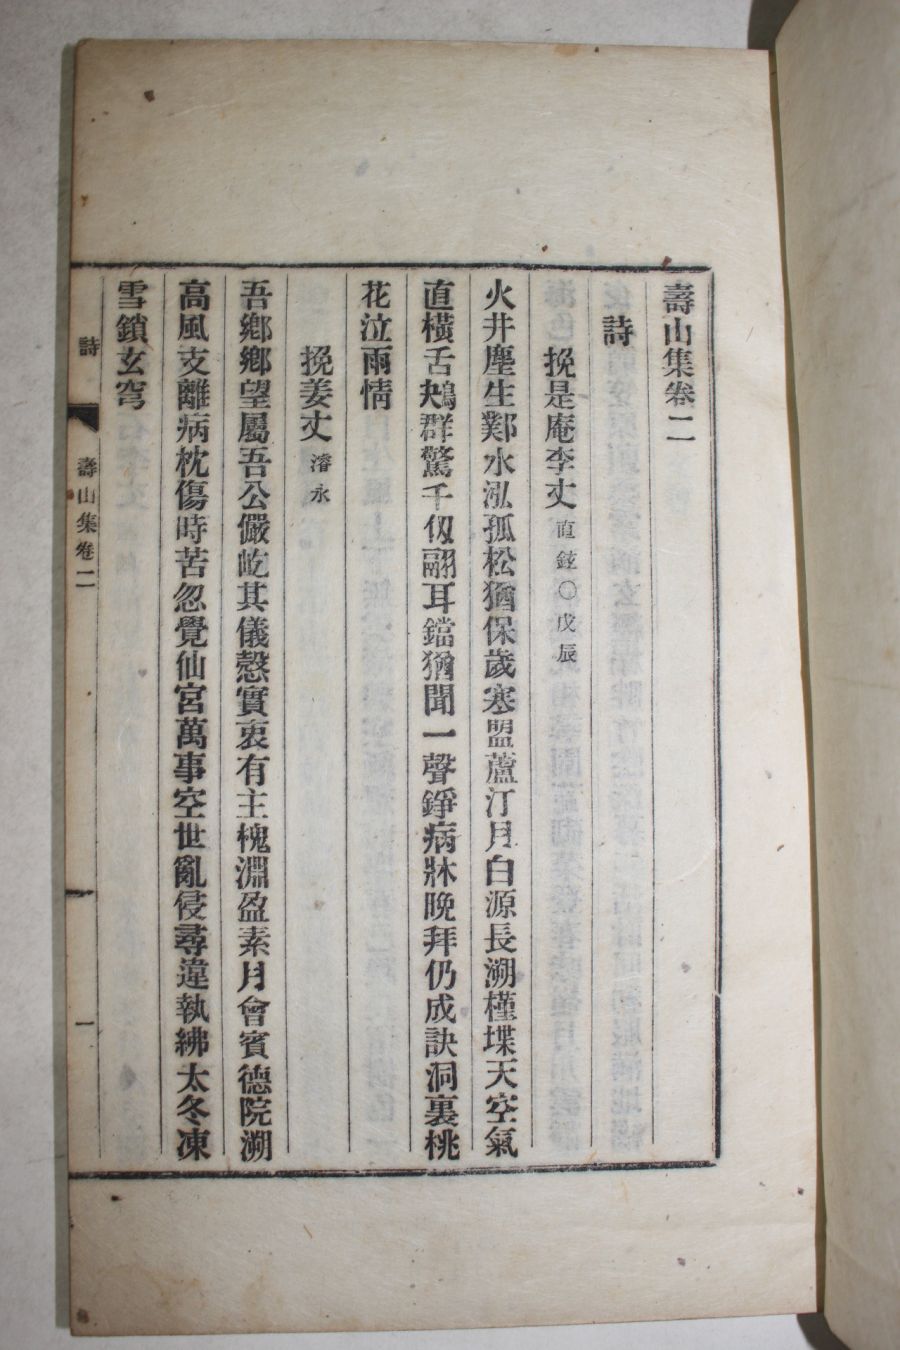 壽山集卷二
詩
挽是庵李丈 直鉉○戊辰
火井塵生鄭水泓孤松猶保歲寒盟蘆汀月白源長溯槿堞天空氣
直橫舌鴂群驚千仭翮耳鐺猶聞一聲錚病牀晚拜仍成訣洞裏桃
花泣雨情
挽姜丈 濬永
吾鄉鄉望屬吾公儼屹其儀慤實衷有主槐淵盈素月會賓德院溯
高風支離病枕傷時苦忽覺仙宮萬事空世亂侵尋違執紼太冬凍
雪鎖玄穹
詩
壽山集卷二
一